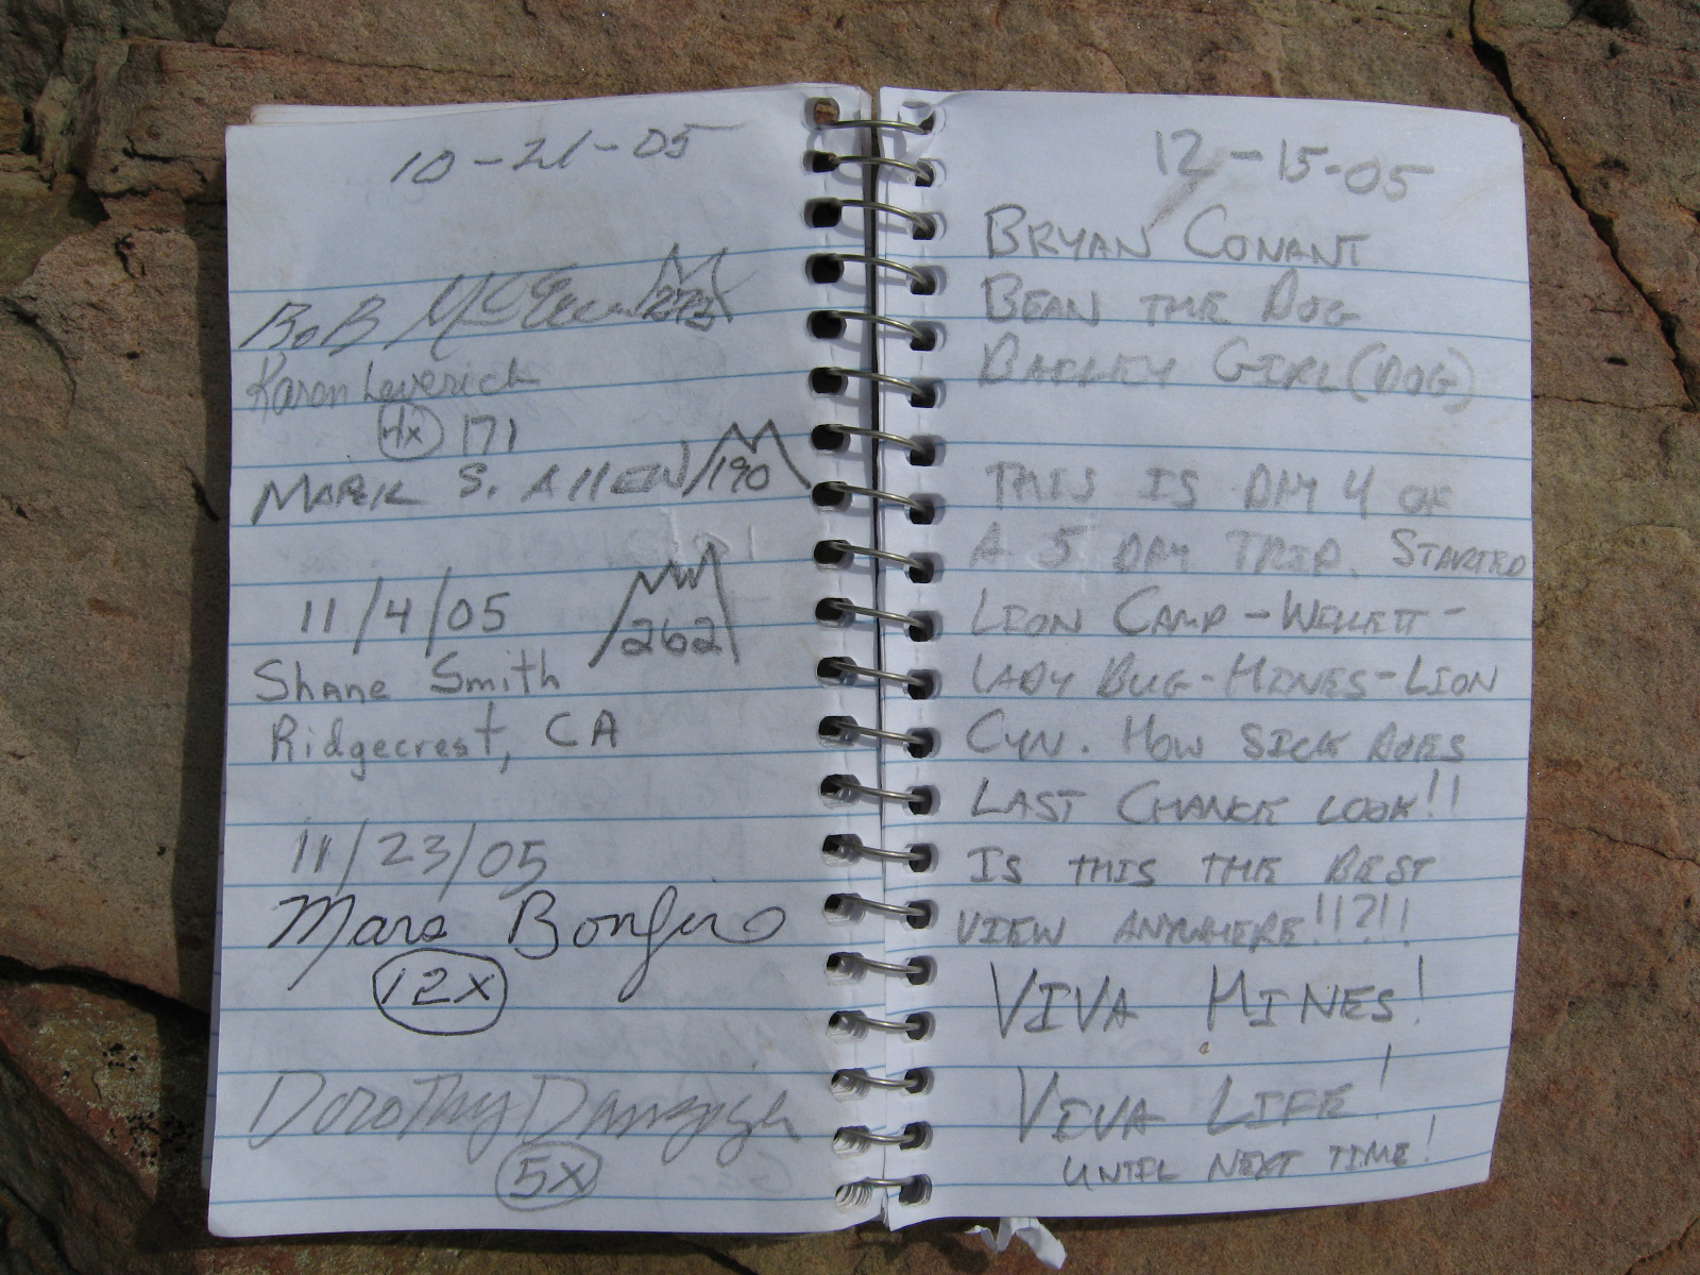 10-21-05
Bob
Karen Leverich
4x 171
Mark S. Allen 190
11/4/05 262
Shane Smith
Ridgecrest, CA
11/23/05
Mars Bonfire
12x
Dorothy Danziger
5x
12-15-05
BRYAN CONANT
BEAN THE DOG
BAILEY GIRL (DOG)
THIS IS DAY 4 OF
A 5 DAY TRIP. STARTED
LION CAMP - WELLETT -
LADY BUG - HINES - LION
CYN. HOW SICK DOES
LAST CHANCE LOOK!!
IS THIS THE BEST
VIEW ANYWHERE!!?!!
VIVA HINES!
VIVA LIFE!
UNTIL NEXT TIME!